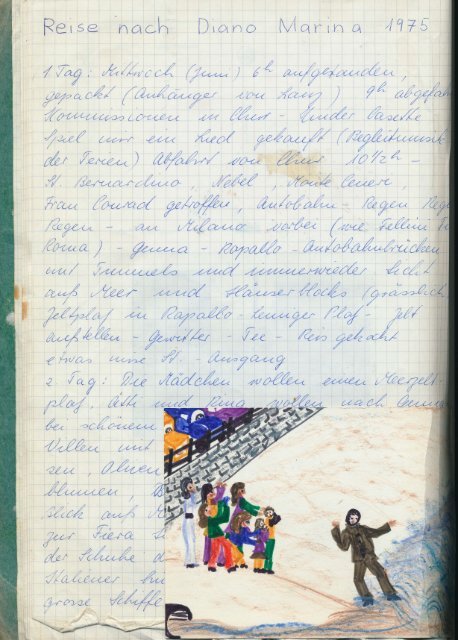 Reise nach Diano Marina 1975
1 Tag: Mittwoch (Juni) 6h aufgestanden,
gepackt (Anhänger von Lanz) 9h abgefah
Kommissionen in Chur - Kinder Casette
Spiel mir ein Lied gekauft (Begleitmusik
der Ferien) Abfahrt von Chur 10½h -
St. Bernardino, Nebel, Monte Ceneri,
Frau Conrad getroffen, Autobahn - Regen Reg
Regen - an Milano vorbei (wie Fellini
Roma) - Genua - Rapallo - Autobahnbrücken
mit Tunnels und immer wieder Sicht
aufs Meer und Häuserblocks (grässlich
Zeltplatz in Rapallo - Platz - Zelt
aufstellen - Gewitter - Tee - Reis gekocht
etwas - Ausgang
2. Tag: Die Mädchen wollen einen Meerzelt-
platz. und wollen nach
bei schönem
Villen mit
sen,
blumen,
Blick auf
zur Fiera
der Schuhe d
Italiener
grosse Schiffe